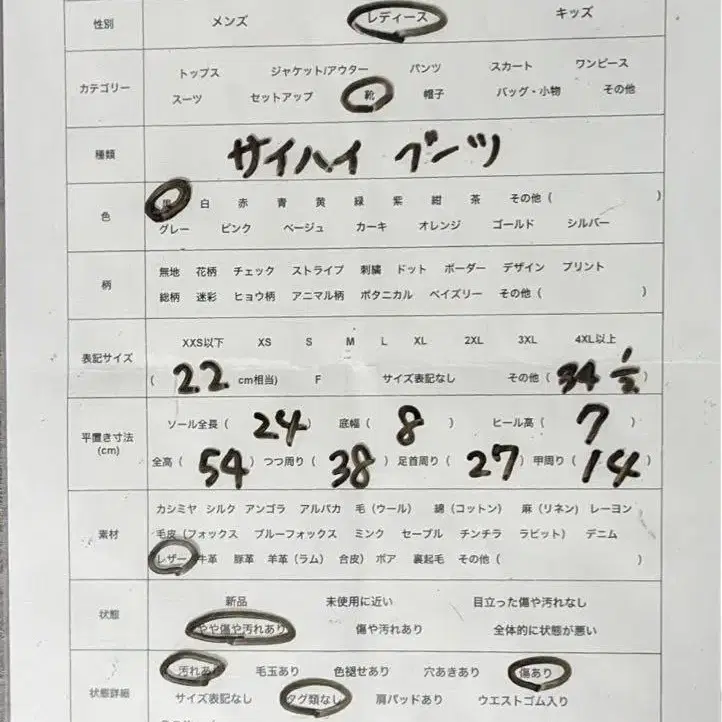 性別 メンズ レディース キッズ
カテゴリー トップス ジャケット/アウター パンツ スカート ワンピース
スーツ セットアップ 靴 帽子 バッグ・小物 その他
種類 サイハイ ブーツ
色 黒 白 赤 青 黄 緑 紫 紺 茶 その他 ( )
グレー ピンク ベージュ カーキ オレンジ ゴールド シルバー
柄 無地 花柄 チェック ストライプ 刺繍 ドット ボーダー デザイン プリント
総柄 迷彩 ヒョウ柄 アニマル柄 ボタニカル ペイズリー その他 ( )
表記サイズ XXS以下 XS S M L XL 2XL 3XL 4XL以上
( 22 cm相当) F サイズ表記なし その他 ( 34 1/2 )
平置き寸法 (cm) ソール全長 ( 24 ) 底幅 ( 8 ) ヒール高 ( 7 )
全高 ( 54 ) つつ周り ( 38 ) 足首周り ( 27 ) 甲周り ( 14 )
素材 カシミヤ シルク アンゴラ アルパカ 毛 (ウール) 綿 (コットン) 麻 (リネン) レーヨン
毛皮 (フォックス ブルーフォックス ミンク セーブル チンチラ ラビット) デニム
レザー 牛革 豚革 羊革 (ラム) 合皮 ボア 裏起毛 その他 ( )
状態 新品 未使用に近い 目立った傷や汚れなし
やや傷や汚れあり 傷や汚れあり 全体的に状態が悪い
状態詳細 汚れあり 毛玉あり 色褪せあり 穴あきあり 傷あり
サイズ表記なし タグ類なし 肩パッドあり ウエストゴム入り